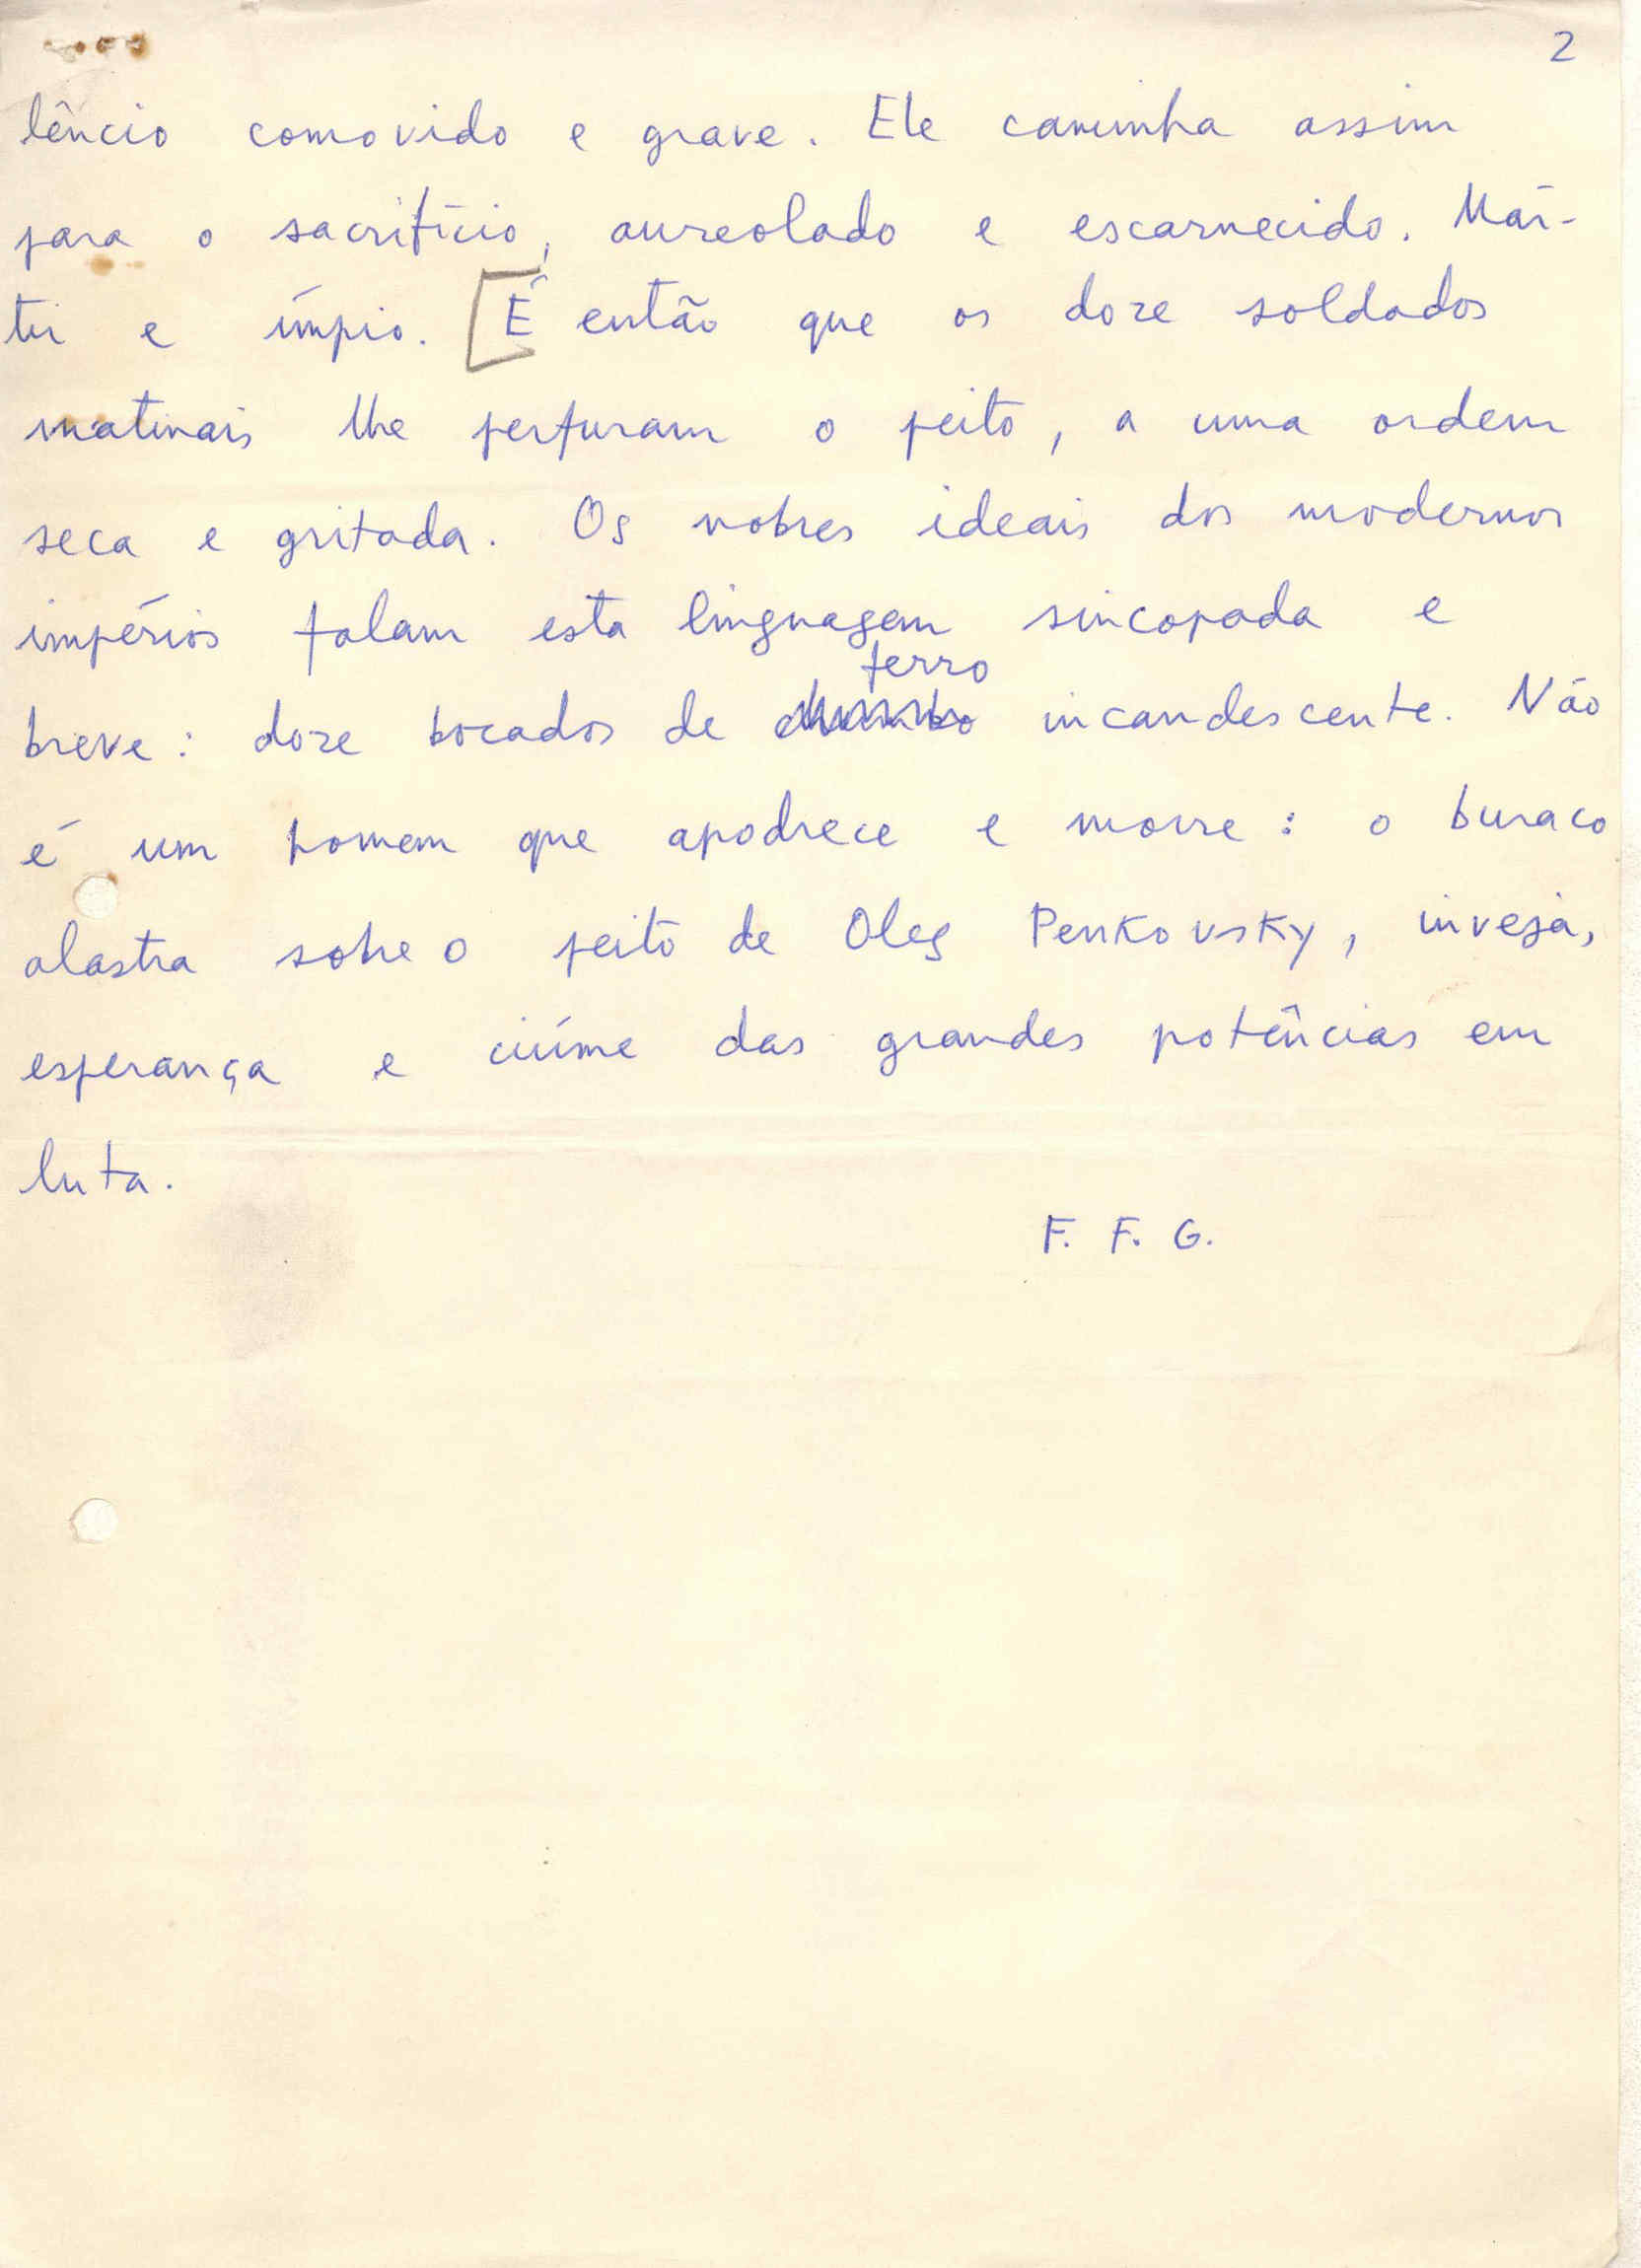 2
lêncio comovido e grave. Ele caminha assim
para o sacrifício, aureolado e escarnecido. Már-
tir e ímpio. [É então que os doze soldados
matinais lhe perfuram o peito, a uma ordem
seca e gritada. Os nobres ideais dos modernos
impérios falam esta linguagem sincopada e
ferro
breve: doze bocados de chumbo incandescente. Não
é um homem que apodrece e morre: o buraco
alastra sobre o peito de Oleg Penkovsky, inveja,
esperança e ciúme das grandes potências em
luta.
F. F. G.